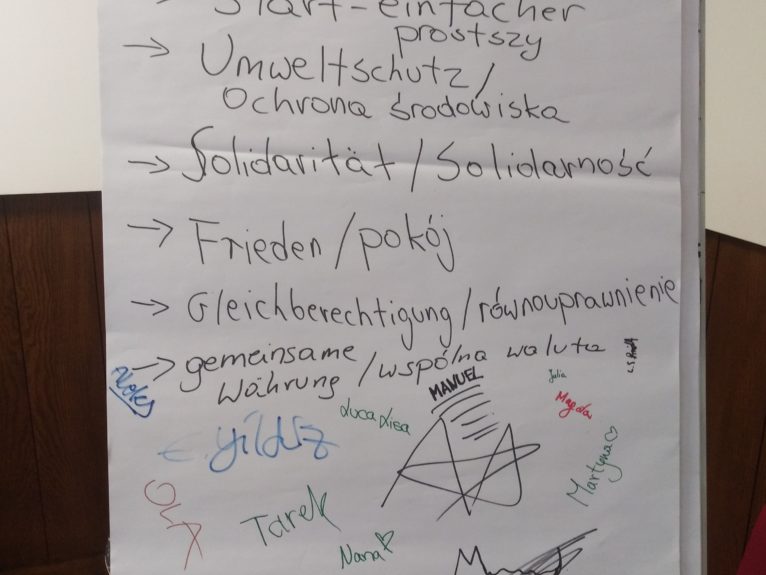 Start-einfacher
prostszy
→ Umweltschutz/
Ochrona środowiska
→ Solidarität / Solidarność
→ Frieden / pokój
→ Gleichberechtigung / równouprawnienie
→ gemeinsame
Währung / wspólna waluta
MANUEL
Julia
Magda
Luca Lisa
E. Yildiz
Martyna
OLA
Tarek
Nana